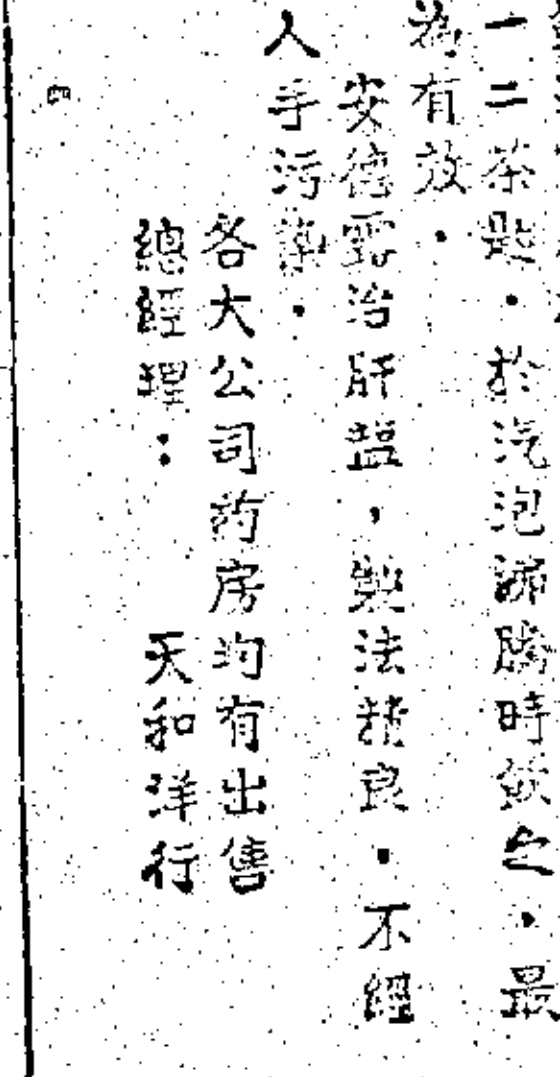 一二茶匙．於汽泡沸腾時飲之．最
為有效．
安德露治肝鹽，製法精良．不經
人手污染．
各大公司葯房均有出售
總經理：　天和洋行